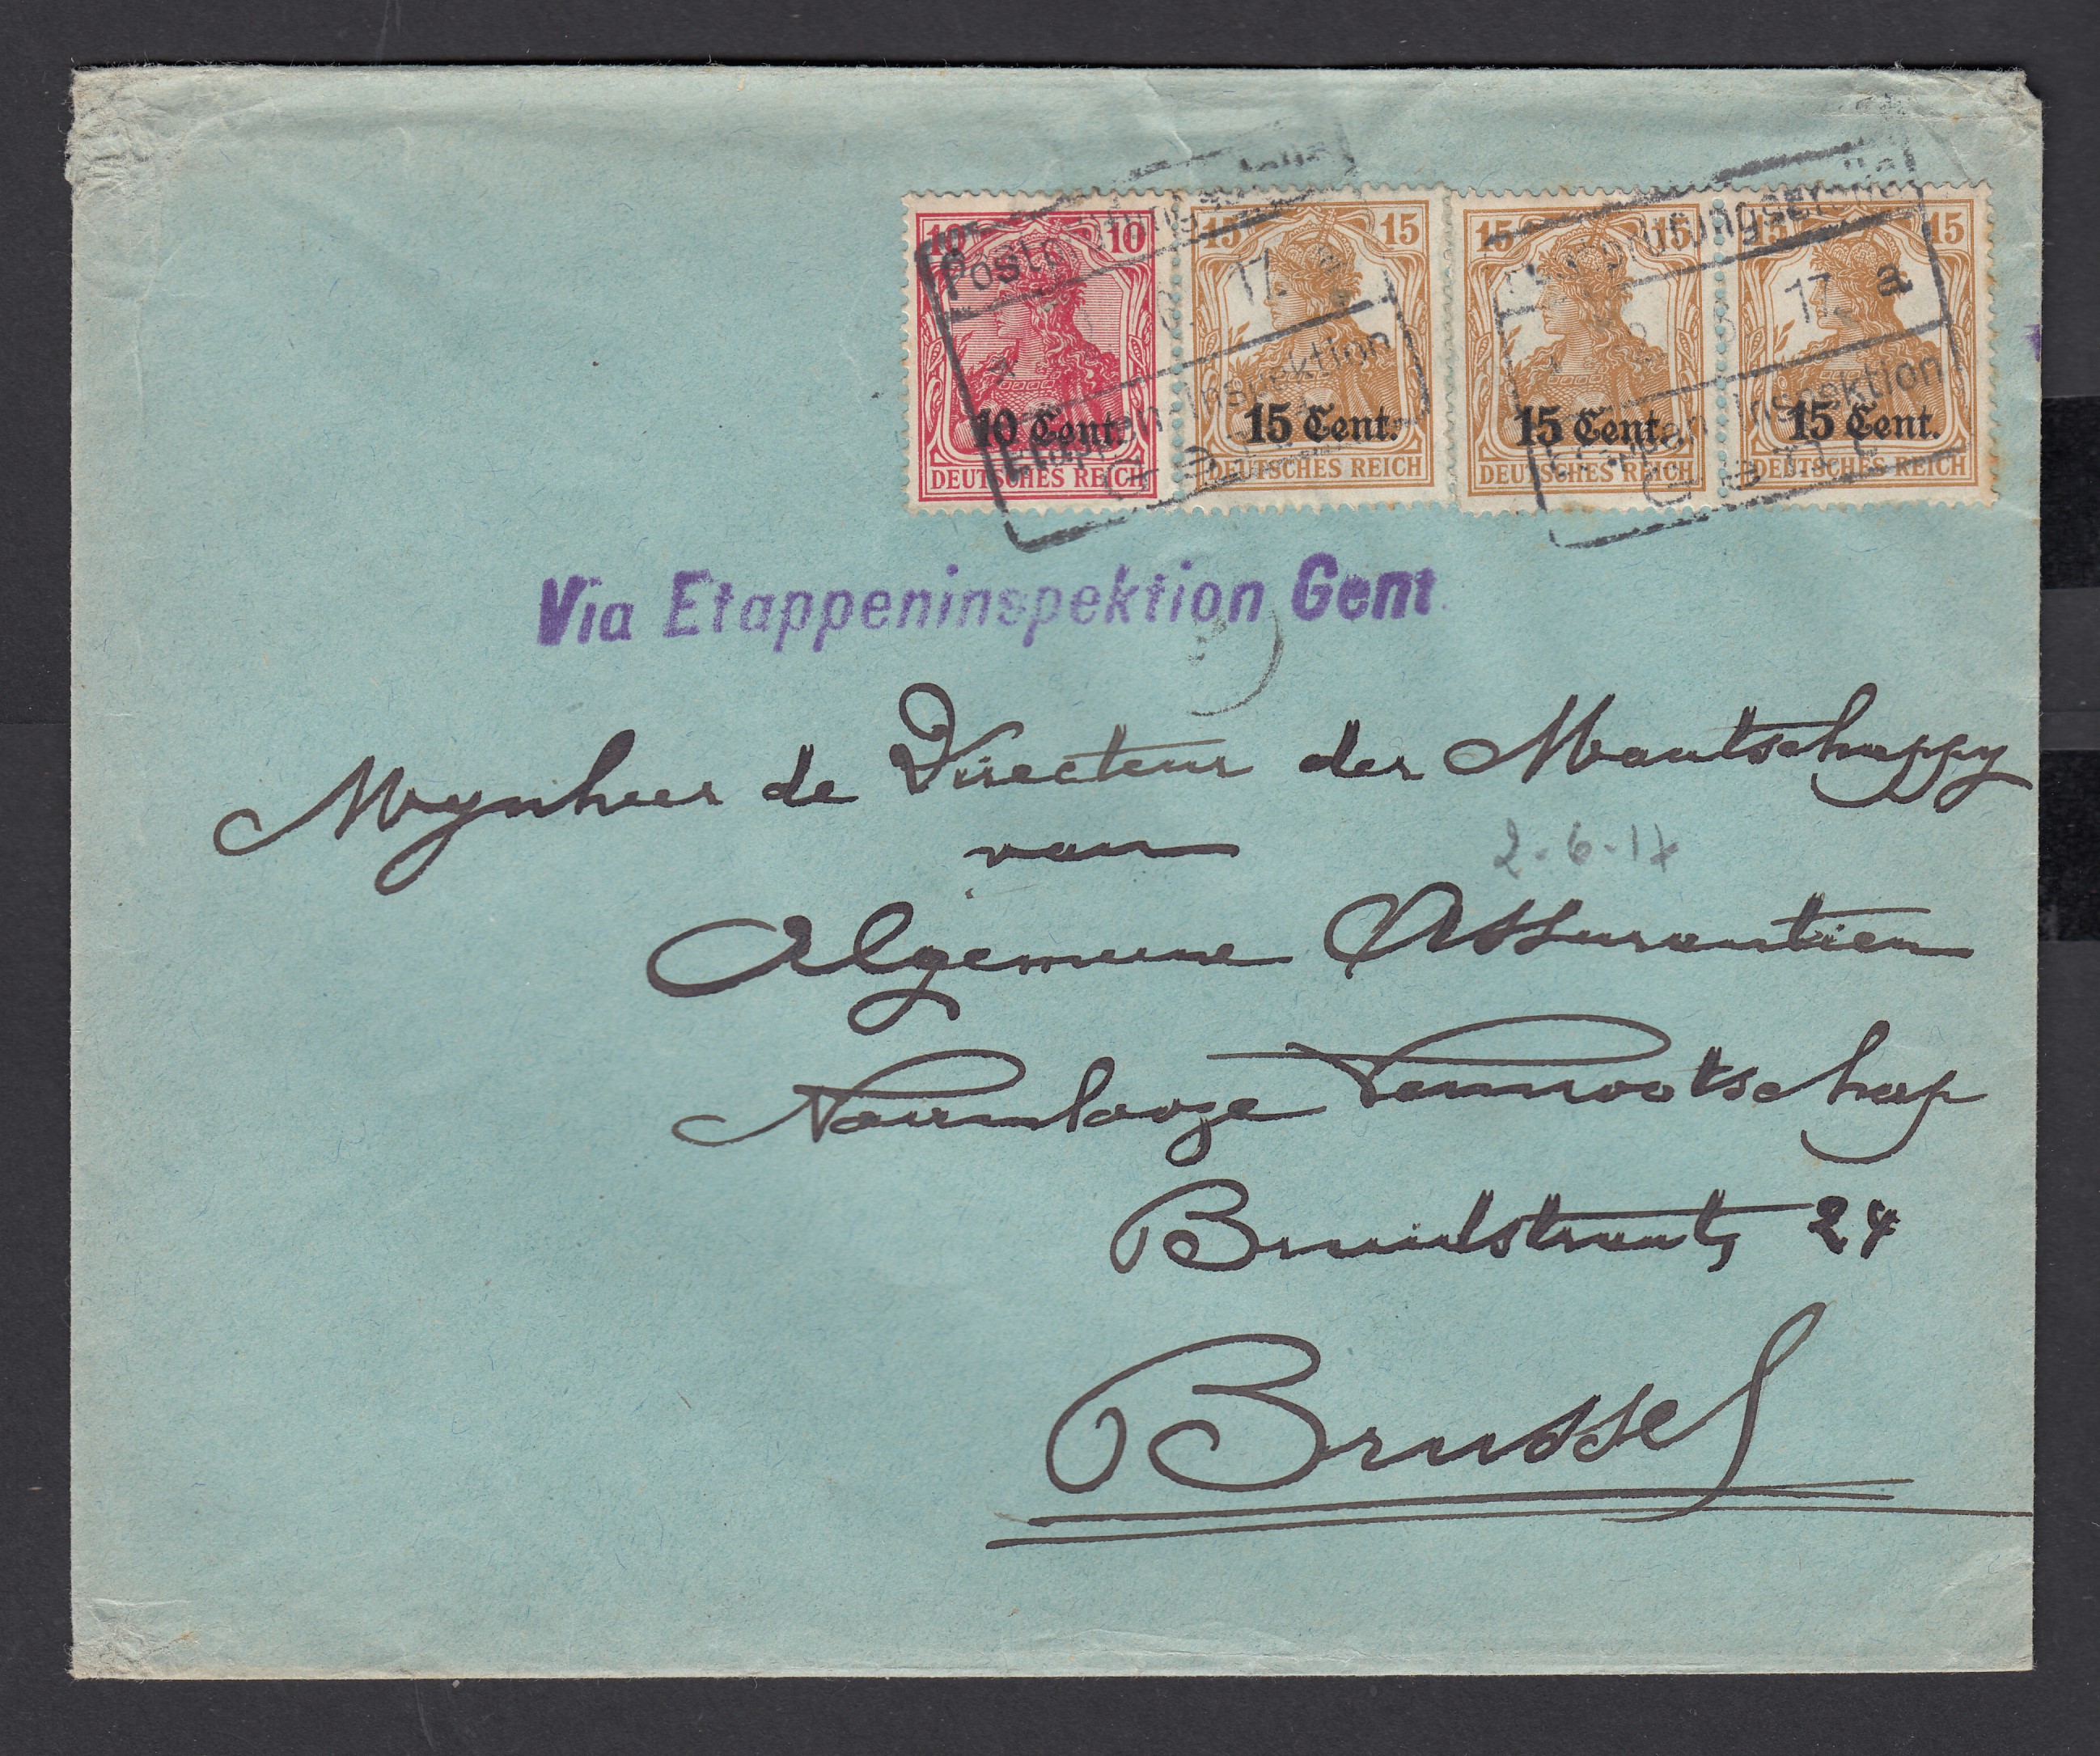 10 10 15 15 15 15 15 15
Postprüfungsstelle Postprüfungsstelle
17. a 17. a
Etappen-Inspektion Etappen-Inspektion
Gent Gent
10 Cent. 15 Cent. 15 Cent. 15 Cent.
DEUTSCHES REICH DEUTSCHES REICH DEUTSCHES REICH DEUTSCHES REICH
Via Etappeninspektion Gent
Mynheer de Directeur der Maatschappy
van
2-6-17
Algemeene Assurantien
Naamlooze Vennootschap
Bruidstraat, 24
Brussel